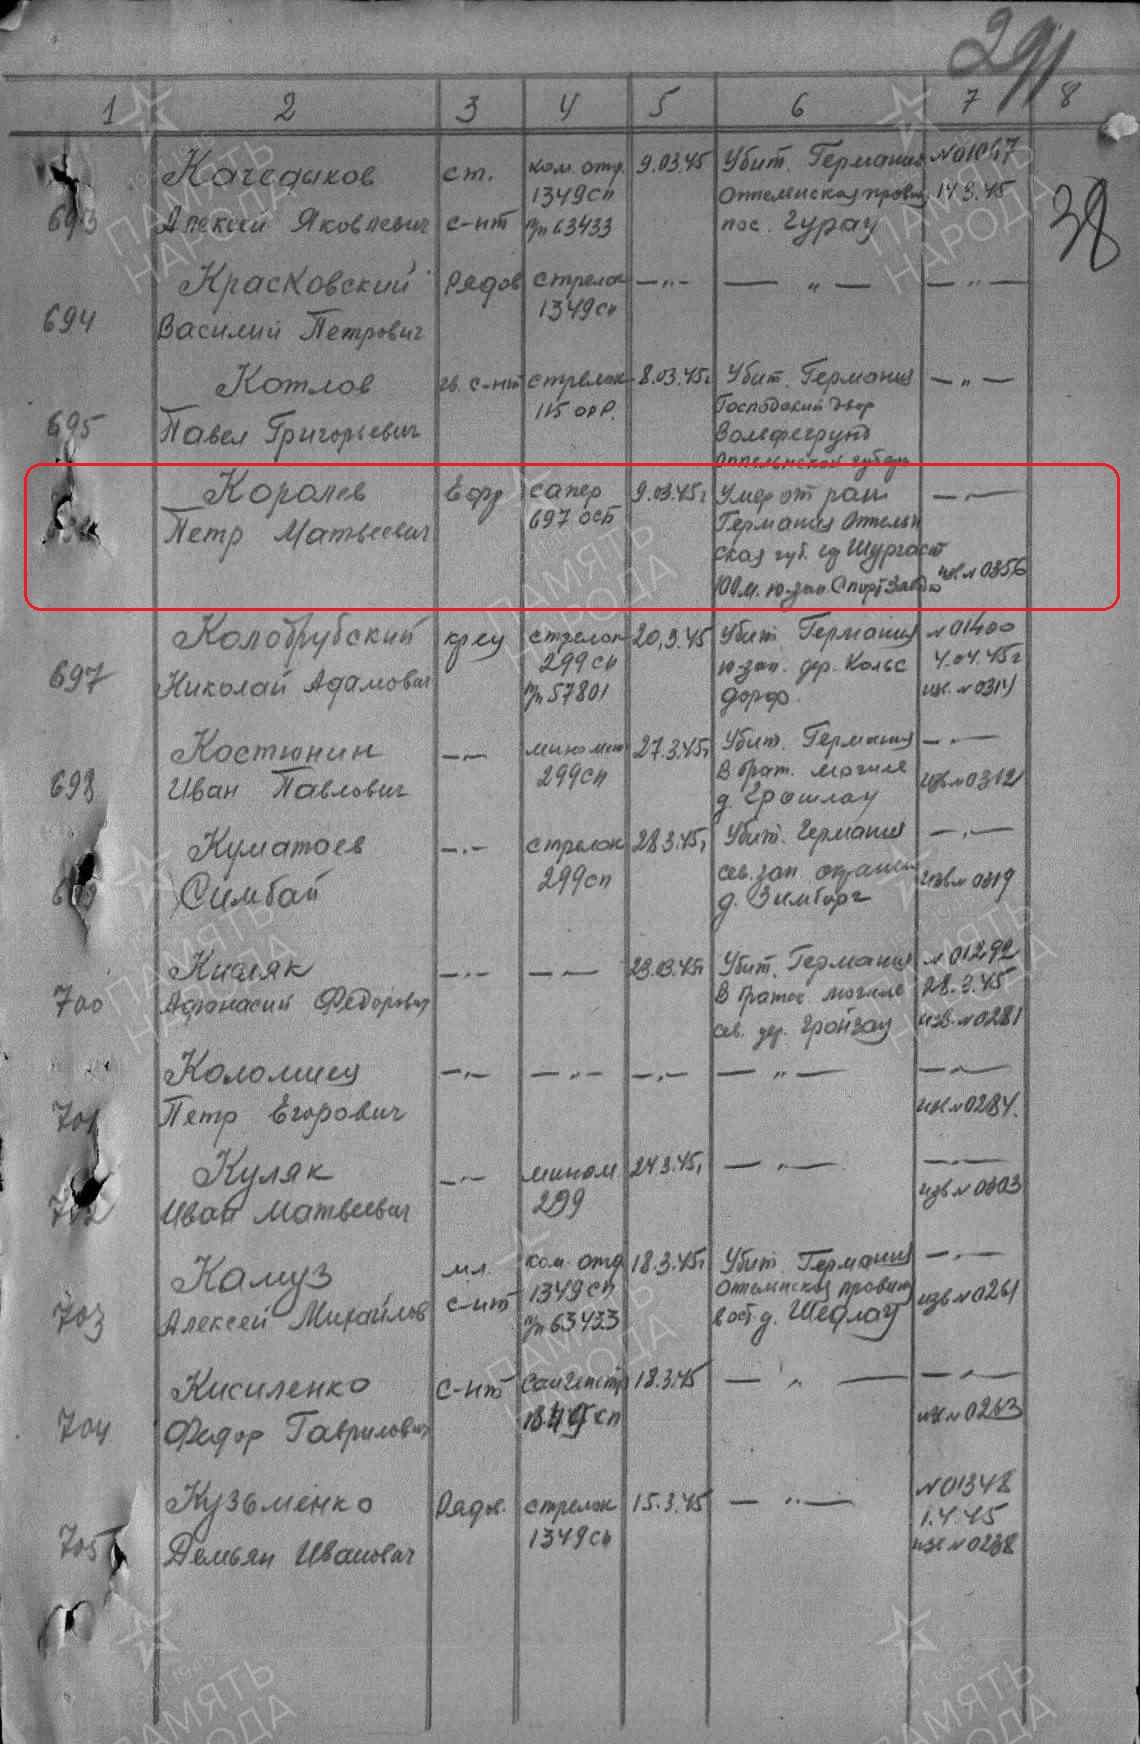 291
1 2 3 4 5 6 7 8
38
693 Качедыков ст. ком. отд. 9.03.45 Убит. Германия №01047
Алексей Яковлевич с-нт 1349 сп Оппельнская провин 14.3.45
п/п 63433 пос. Гурау
694 Красковский Рядов стрелок —„— — „ — — „ —
Василий Петрович 1349 сп
695 Котлов гв. с-нт стрелок 8.03.45г Убит. Германия — „ —
Павел Григорьевич 115 орр. Господский двор
оппельнской губерн
Королев Ефр сапер 9.03.45г Умер от ран — „ —
Петр Матвеевич 697 осб Германия Оппельн
ская губ. гд Шургаст
100 м. ю-зап. изв №0356
697 Колобрубский креу стрелок 20.3.45 Убит Германия №01400
Николай Адамович 299 сп ю-зап. дер. Кольс 4.04.45г
п/п 57801 дорф. изв. №0314
698 Костюнин —„— миномет 27.3.45г Убит. Германия — „ —
Иван Павлович 299 сп В брат. могиле изв №0312
д. Грошлау
Куматаев —„— стрелок 28.3.45г Убит. Германия — „ —
Симбай 299 сп сев. зап. окраина изв №0319
д. Зимборг
700 Кисляк —„— — „ — 23.03.45г Убит. Германия №01292
Афанасий Федорович В братск. могиле 28.3.45
сев. дер. Гройзау изв. №0281
701 Коломиец —„— — „ — —„— — „ — — „ —
Петр Егорович изв №0284.
702 Куляк —„— мином. 24.3.45г — „ — — „ —
Иван Матвеевич 299 изв №0303
703 Камуз мл. ком. отд 18.3.45г Убит. Германия — „ —
Алексей Михайлов с-нт 1349 сп Оппельнская провин изв №0261
п/п 63433 вост д. Шедлау
704 Кисиленко с-нт 18.3.45 — „ — — „ —
Федор Гаврилович 1349 сп изв №0263
705 Кузьменко Рядов. стрелок 15.3.45 — „ — №01348
Демьян Иванович 1349 сп 1.4.45
изв №0238
ПАМЯТЬ
НАРОДА